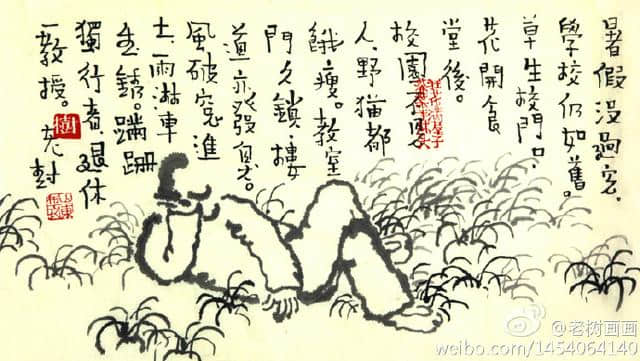 暑假没過完、
學校仍如舊。
草生校門口、
花開食
堂後。
校園
人、野猫都
餓瘦。教室
門久鎖、樓
道亦發臭。
風破窗進
土、雨淋車
生锈。蹒跚
獨行者、退休
一教授。
@老树画画
weibo.com/1454064140